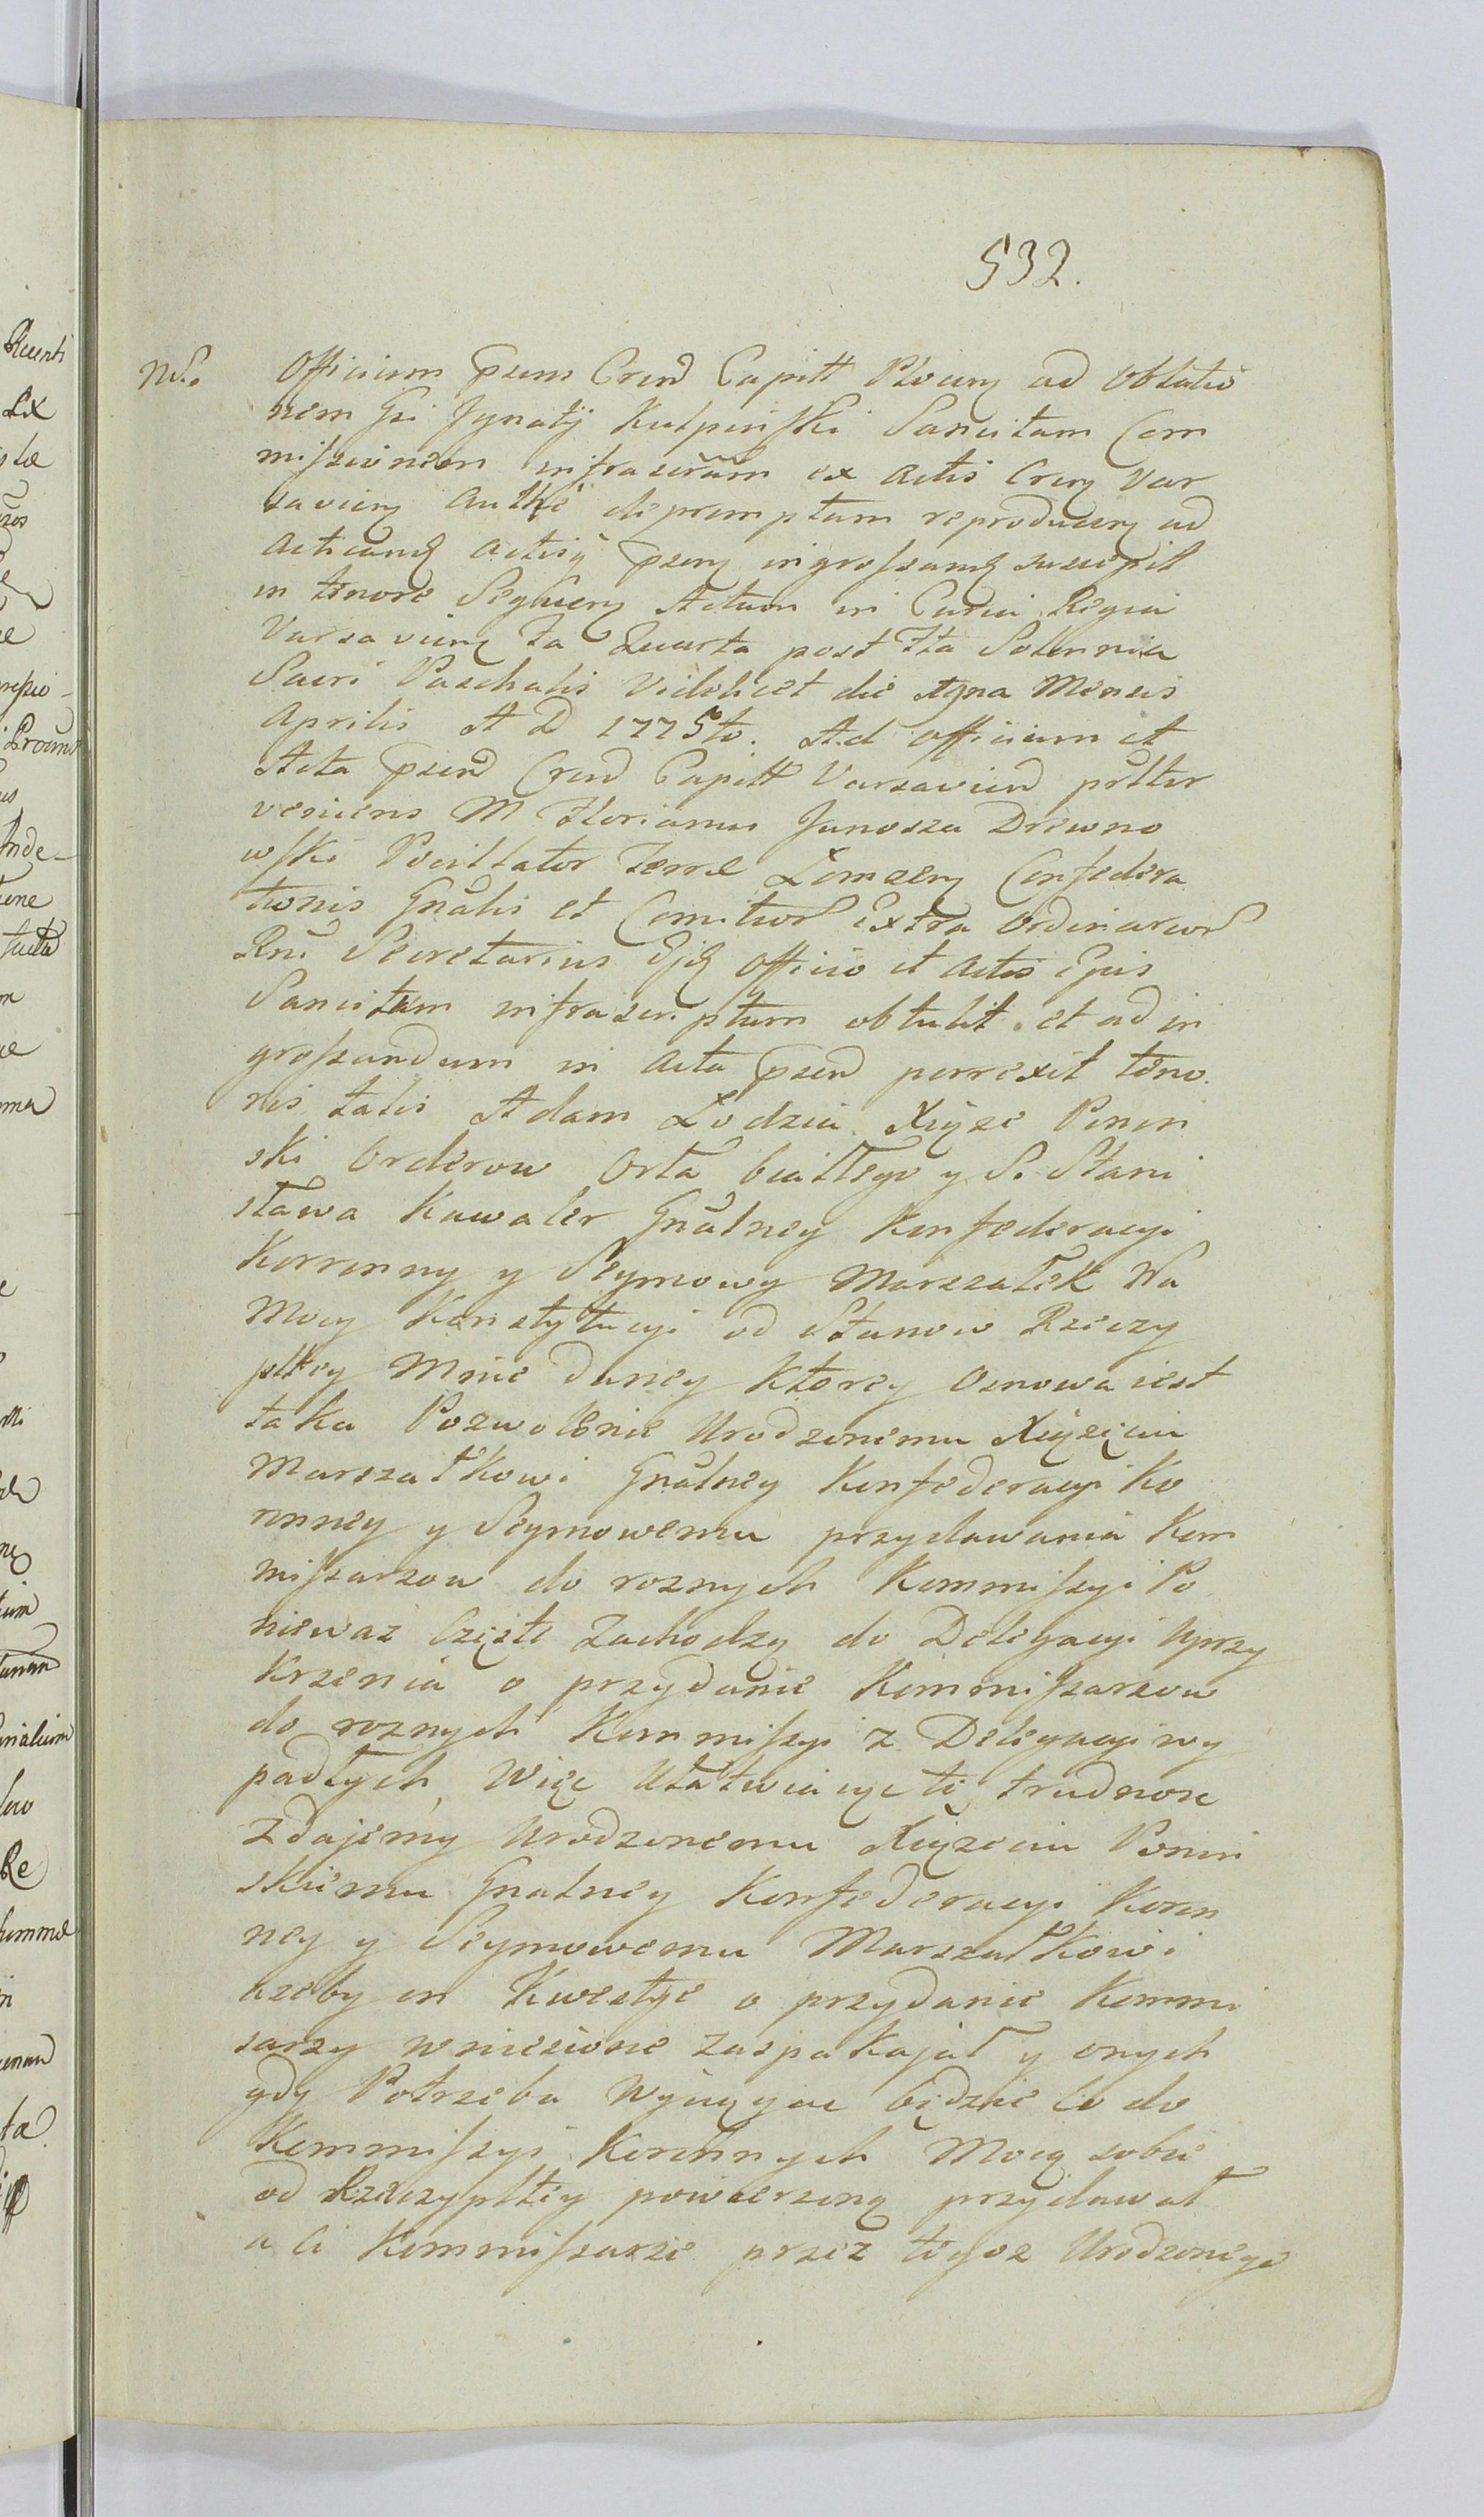 532.
Nd.
Officium Psens Crens Capitt Plocens ad oblatio
nem Gsi Jgnatij Kulpinski Sancitum Com
missionem infrascrm ex Actis Crens Var
saviens Authe depromptum reproducens ad
acticand Actisq Psens ingrossand suscepit
in tenore Sequens Actum in Curia Regia
Varsaviens Ia Quarta post Ita Solennia
Sacri Paschalis Videlicet die 19na Mensis
Aprilis A D 1775to. Ad officium et
Acta Psens Crens Capitt Varsaviens psltter
veniens M Florianus Junosza Drewno
wski Pocillator Terræ Łomzens Confedera
tionis Gnalis et Comitior Extra Ordinarior
Rni Secretarius Ejq officio et Actis Ejus
Sancitum infrascriptum obtulit et ad in
grossandum in Acta Psens porrexit teno
ris talis Adam Łodzia Xiąze Ponin
ski Orderow Orła białłego y S. Stani
sława Kawaler Gnalney Konfederacyi
Koronny y Seymowy Marszałek Na
Mocy Konstytucyi od Stanow Rzeczy
pltey Mnie daney Ktorey osnowa iest
taka Pozwolenie Urodzonemu Xiązęciu
Marszałkowi Gnalney Konfederacyi Ko
ronney y Seymowemu przydawania Kom
missarzow do roznych Kommissyi Po
niewaz Częste Zachodzą do Delegacyi Uprzy
Krzenia o przydanie Kommissarzow
do roznych Kommissyi z Delegacyi wy
padłych, Więc Ułatwiaiąc tę trudnosc
Zdajemy Urodzonemu Xiązeciu Ponin
skiemu Gnalney Konfederacyi Koron
ney y Seymowemu Marszałkowi
azeby on Kwestye o przydanie Kommi
sarzy wniesione zaspakajał y onych
gdy Potrzeba Wyciągac będzie Co do
Kommissyi Koronnych Mocą sobie
od Rzeczypltey powierzoną przydawał
a Ci Kommissarze przez tegoz Urodzonego